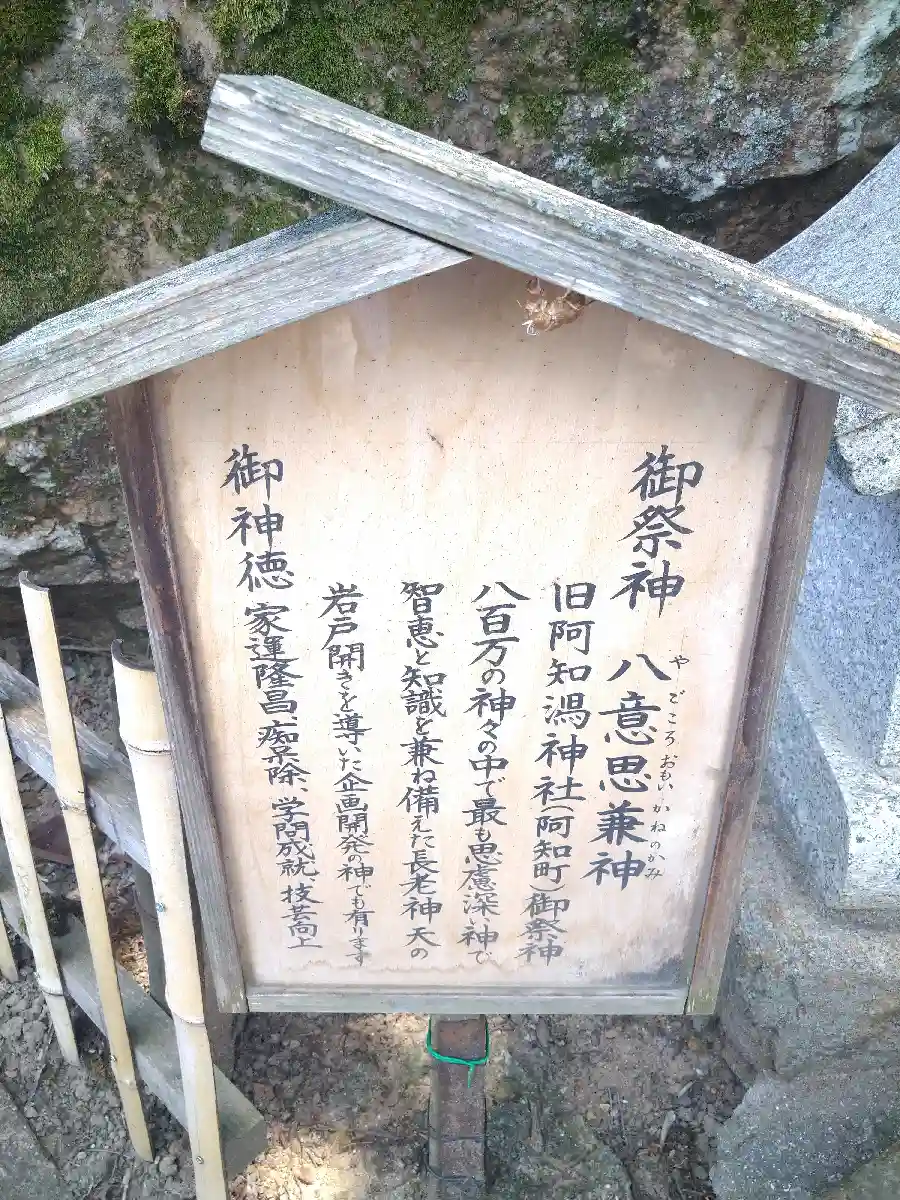 御祭神 八意思兼神
やごころおもいかねのかみ
旧阿知潟神社(阿知町)御祭神
八百万の神々の中で最も思慮深い神で
智恵と知識を兼ね備えた長老神 天の
岩戸開きを導いた企画開発の神でも有ります
御神徳 家運隆昌、痴呆除、学問成就、技芸向上